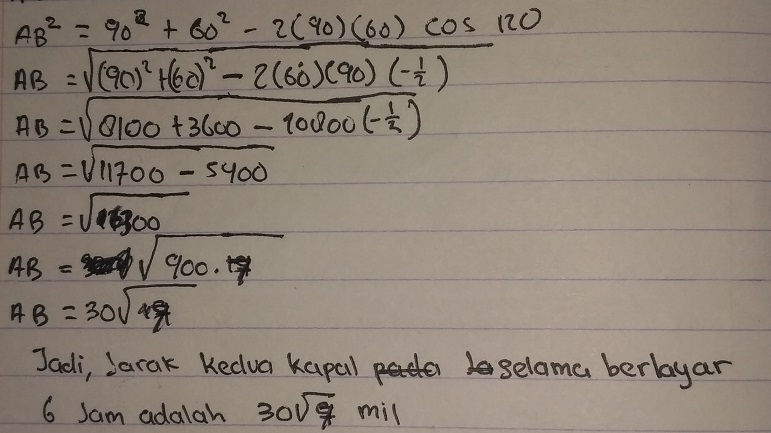 AB² = 90² + 60² - 2(90)(60) cos 120
AB = √((90)² + (60)² - 2(60)(90) (-½))
AB = √(8100 + 3600 - 10800 (-½))
AB = √(11700 - 5400)
AB = √(6300)
AB = √(900 . 7)
AB = 30√7
Jadi, Jarak kedua kapal selama berlayar
6 Jam adalah 30√7 mil